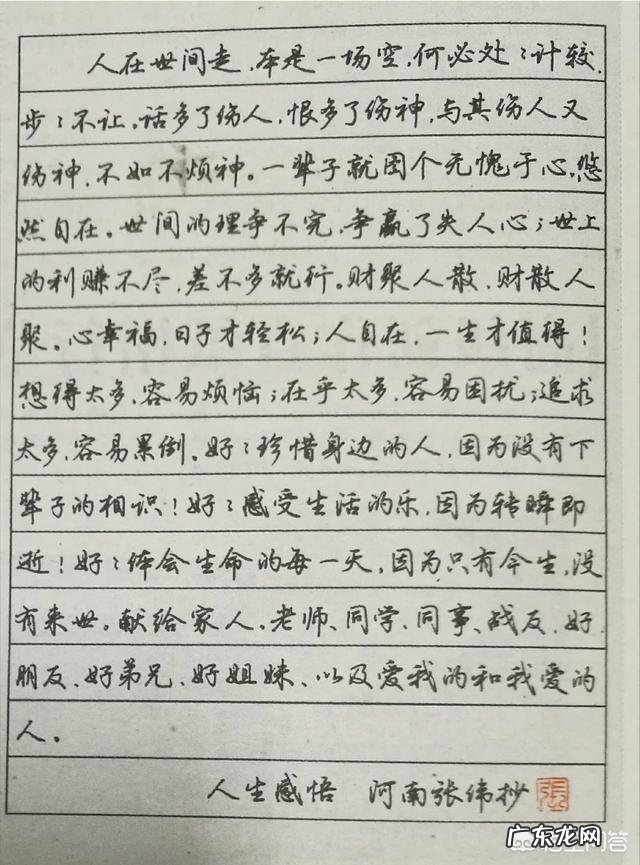 人在世间走，本是一场空，何必处〻计较，
步〻不让。话多了伤人，恨多了伤神，与其伤人又
伤神，不如不烦神。一辈子就图个无愧于心，悠
然自在。世间的理争不完，争赢了失人心；世上
的利赚不尽，差不多就行。财聚人散，财散人
聚。心幸福，日子才轻松；人自在，一生才值得！
想得太多，容易烦恼；在乎太多，容易困扰；追求
太多，容易累倒。好〻珍惜身边的人，因为没有下
辈子的相识！好〻感受生活的乐，因为转瞬即
逝！好〻体会生命的每一天，因为只有今生，没
有来世。献给家人、老师、同学、同事、战友、好
朋友、好弟兄、好姐妹、以及爱我的和我爱的
人。
人生感悟 河南张纬抄
張
广东龙网